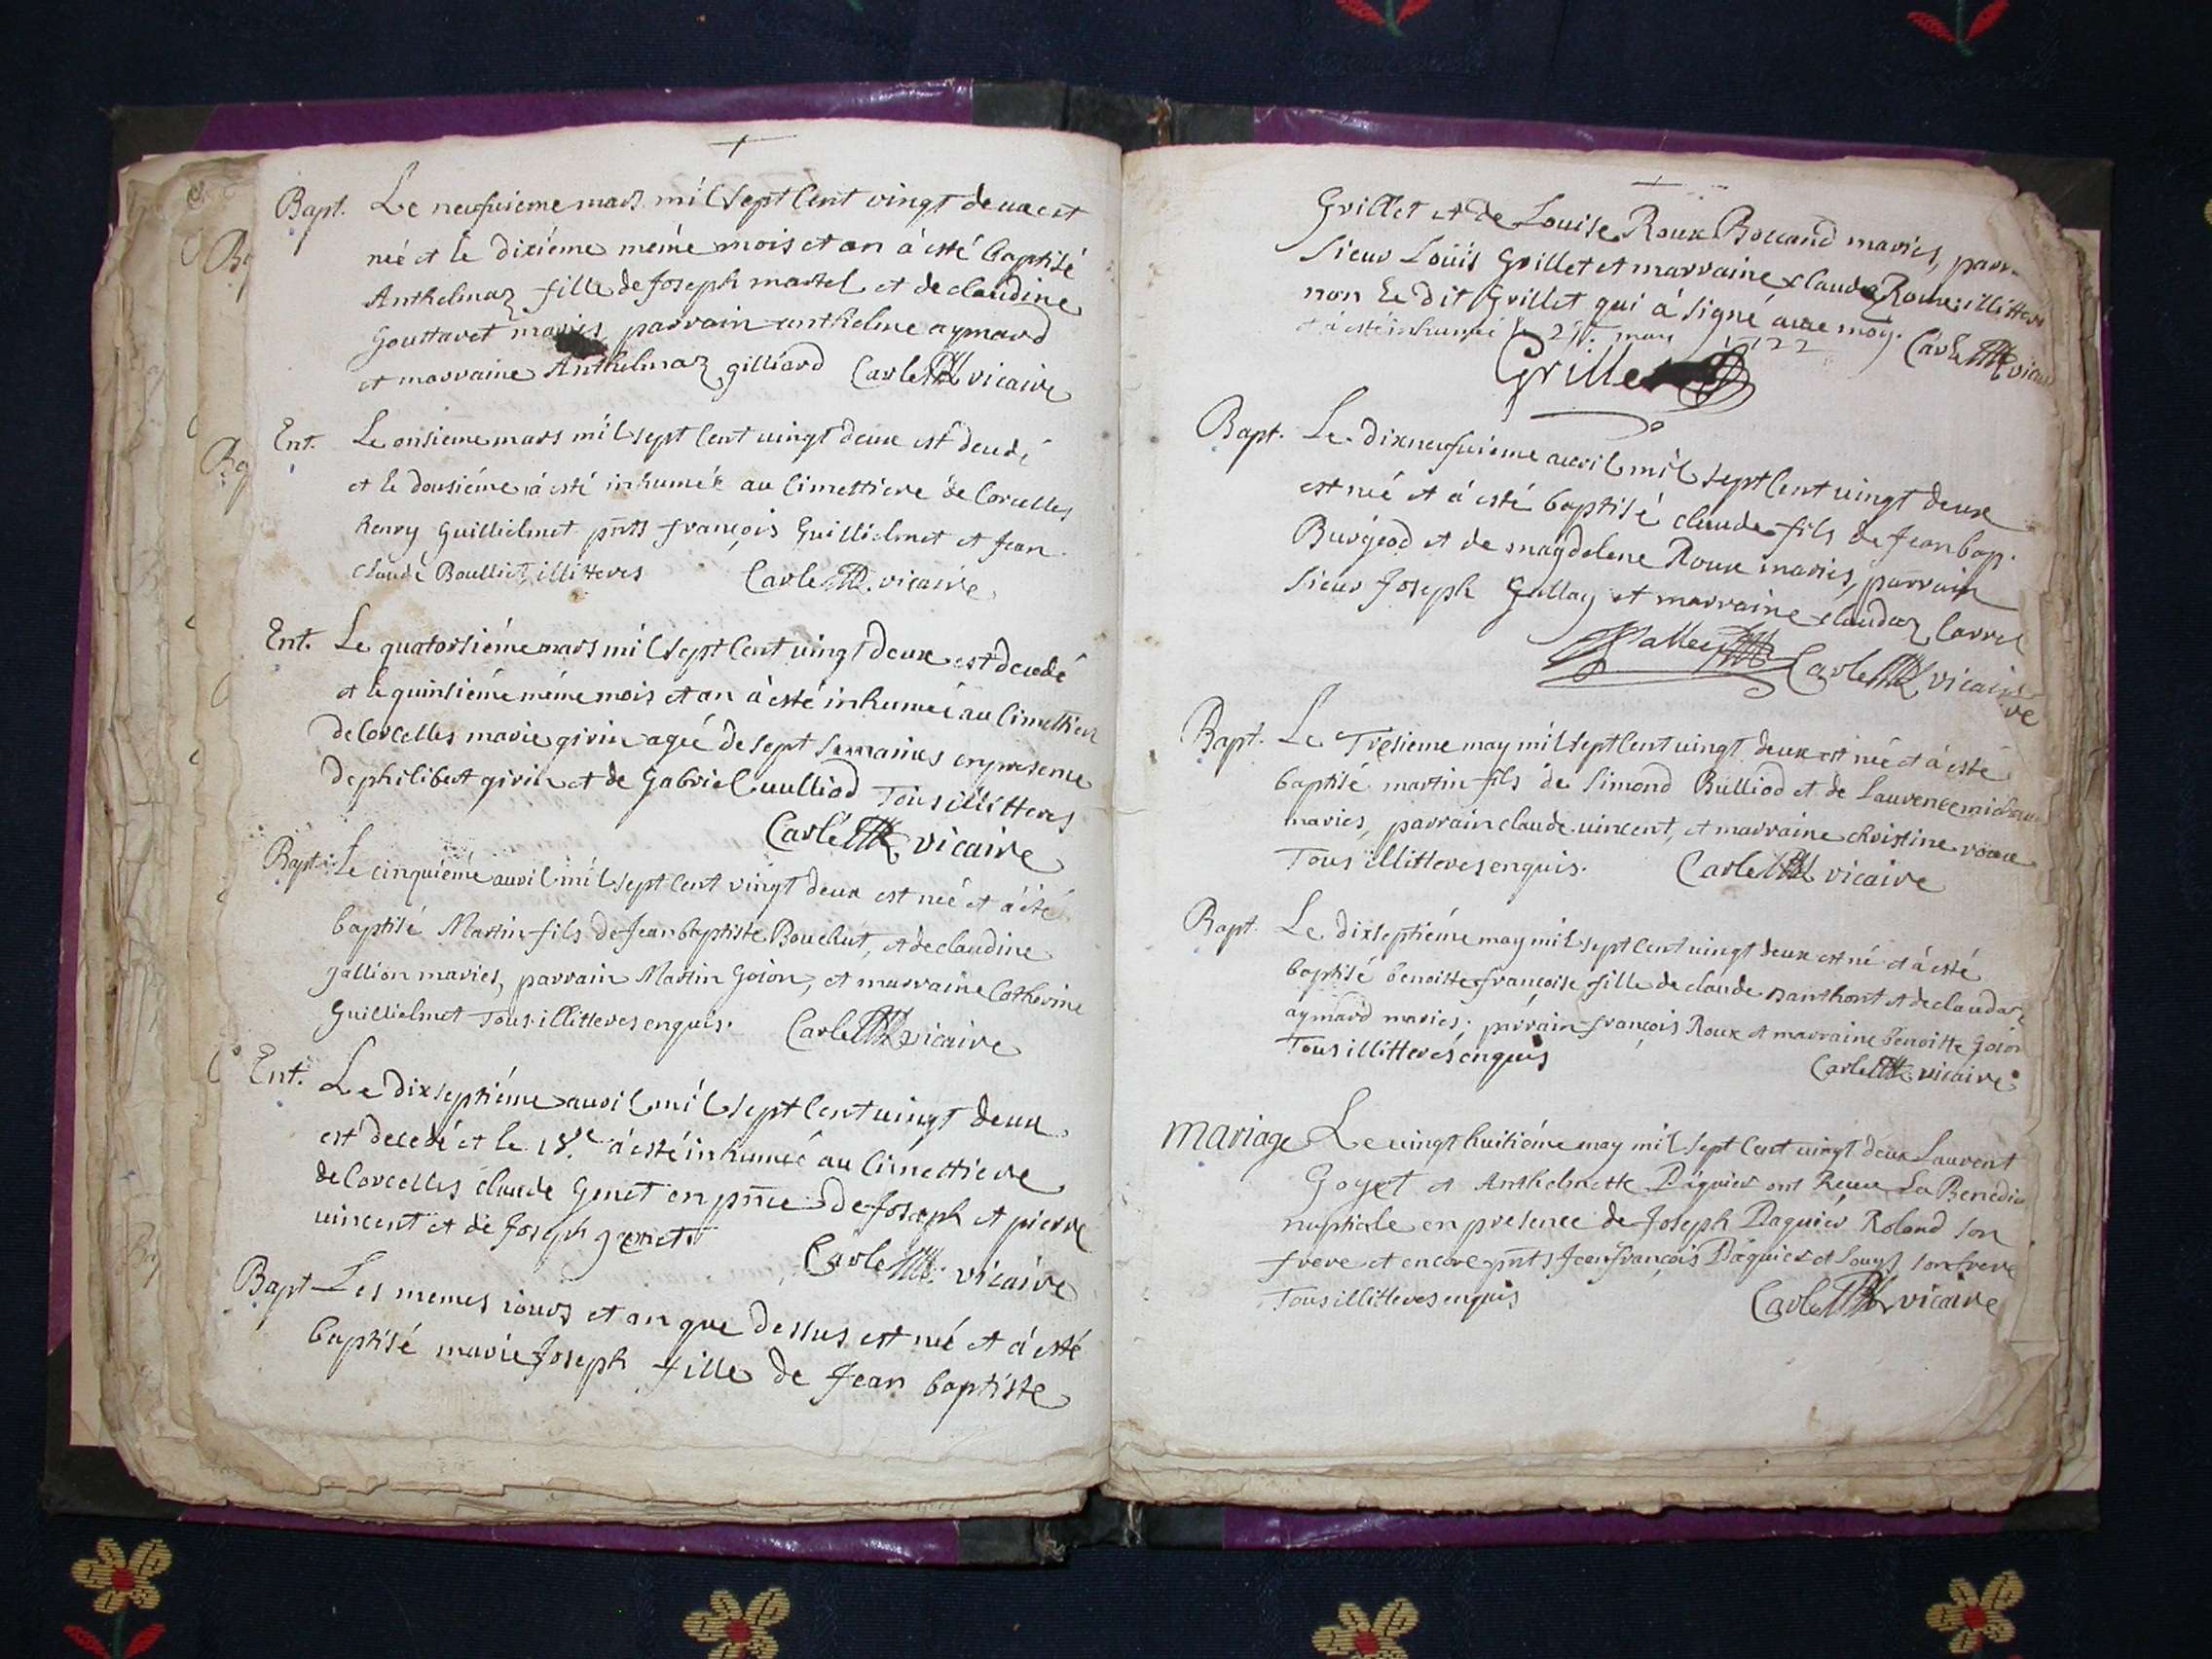 Bapt. Le neufuieme mars mil sept Cent vingt deux est
né et le dixiéme méme mois et an à esté baptisé
Anthelmaz fille de Joseph martel et de claudine
Gouttaret mariés parrain anthelme aymard
et marraine Anthelmaz gilliard Carle vicaire
Ent. Le onsieme mars mil sept Cent vingt deux est decedé
et le dousiéme à esté inhumée au Cimettiere de Corcelles
henry Guillielmet pnts françois Guillielmet et Jean
Claude Boulliet, illitteres Carle vicaire
Ent. Le quatorsiéme mars mil sept Cent vingt deux est decedé
et le quinsiéme méme mois et an à esté inhumée au Cimettiere
de Corcelles marie girin agée de sept semaines en presence
de philibert girin et de Gabriel uulliod Tous illitteres
Carle vicaire
Bapt. Le cinquiéme auril mil sept Cent vingt deux est né et à été
baptisé Martin fils de Jean baptiste Bouchut, et de claudine
gallion maries, parrain Martin Goion, et marraine Catherine
Guillielmet Tous illitteres enquis. Carle vicaire
Ent. Le dixseptiéme auril mil sept Cent uingt deux
est decedé et le 18.e à esté inhumée au Cimettiere
de Corcelles claude Genet en pnce de Joseph et pierre
uincent et de Joseph genet
Carle vicaire
Bapt Les memes iours et an que dessus est né et à esté
baptisé marie Joseph fille de Jean baptiste
Grillet et de Louise Roux Boccand mariés, parr
Sieur Loüis Grillet et marraine claudaz Roux illitteres
non Le dit Grillet qui à signé auec moy.
et à esté inhumée le may 1722 Carle
Grillet
Bapt. Le dixneufuieme auril mil sept Cent uingt deux
est né et à esté baptisé claude fils de Jean bap.
Burgeod et de magdelene Roux mariés, parrain
Sieur Joseph Gallay et marraine claudaz Carrel
Galley Carle vicaire
Bapt. Le Tresieme may mil sept Cent uingt deux est né et à esté
baptisé martin fils de Simond Bulliod et de Laurence
maries, parrain claude uincent, et marraine christine roux
Tous illitteres enquis. Carle vicaire
Bapt. Le dixseptiéme may mil sept Cent uingt deux est né et à esté
baptisé benoitte françoise fille de claude et de claudaz
aymard maries. parrain françois Roux et marraine benoitte Goion
Tous illitteres enquis Carle vicaire
mariage Le uingt huitiéme may mil sept Cent uingt deux Laurent
Goyet et Anthelmette Paquier ont Receu La Benedic
nuptiale en presence de Joseph Paquier Roland son
frere et encore pnts Jean françois Paquier et Louys son frere
Tous illitteres enquis Carle vicaire